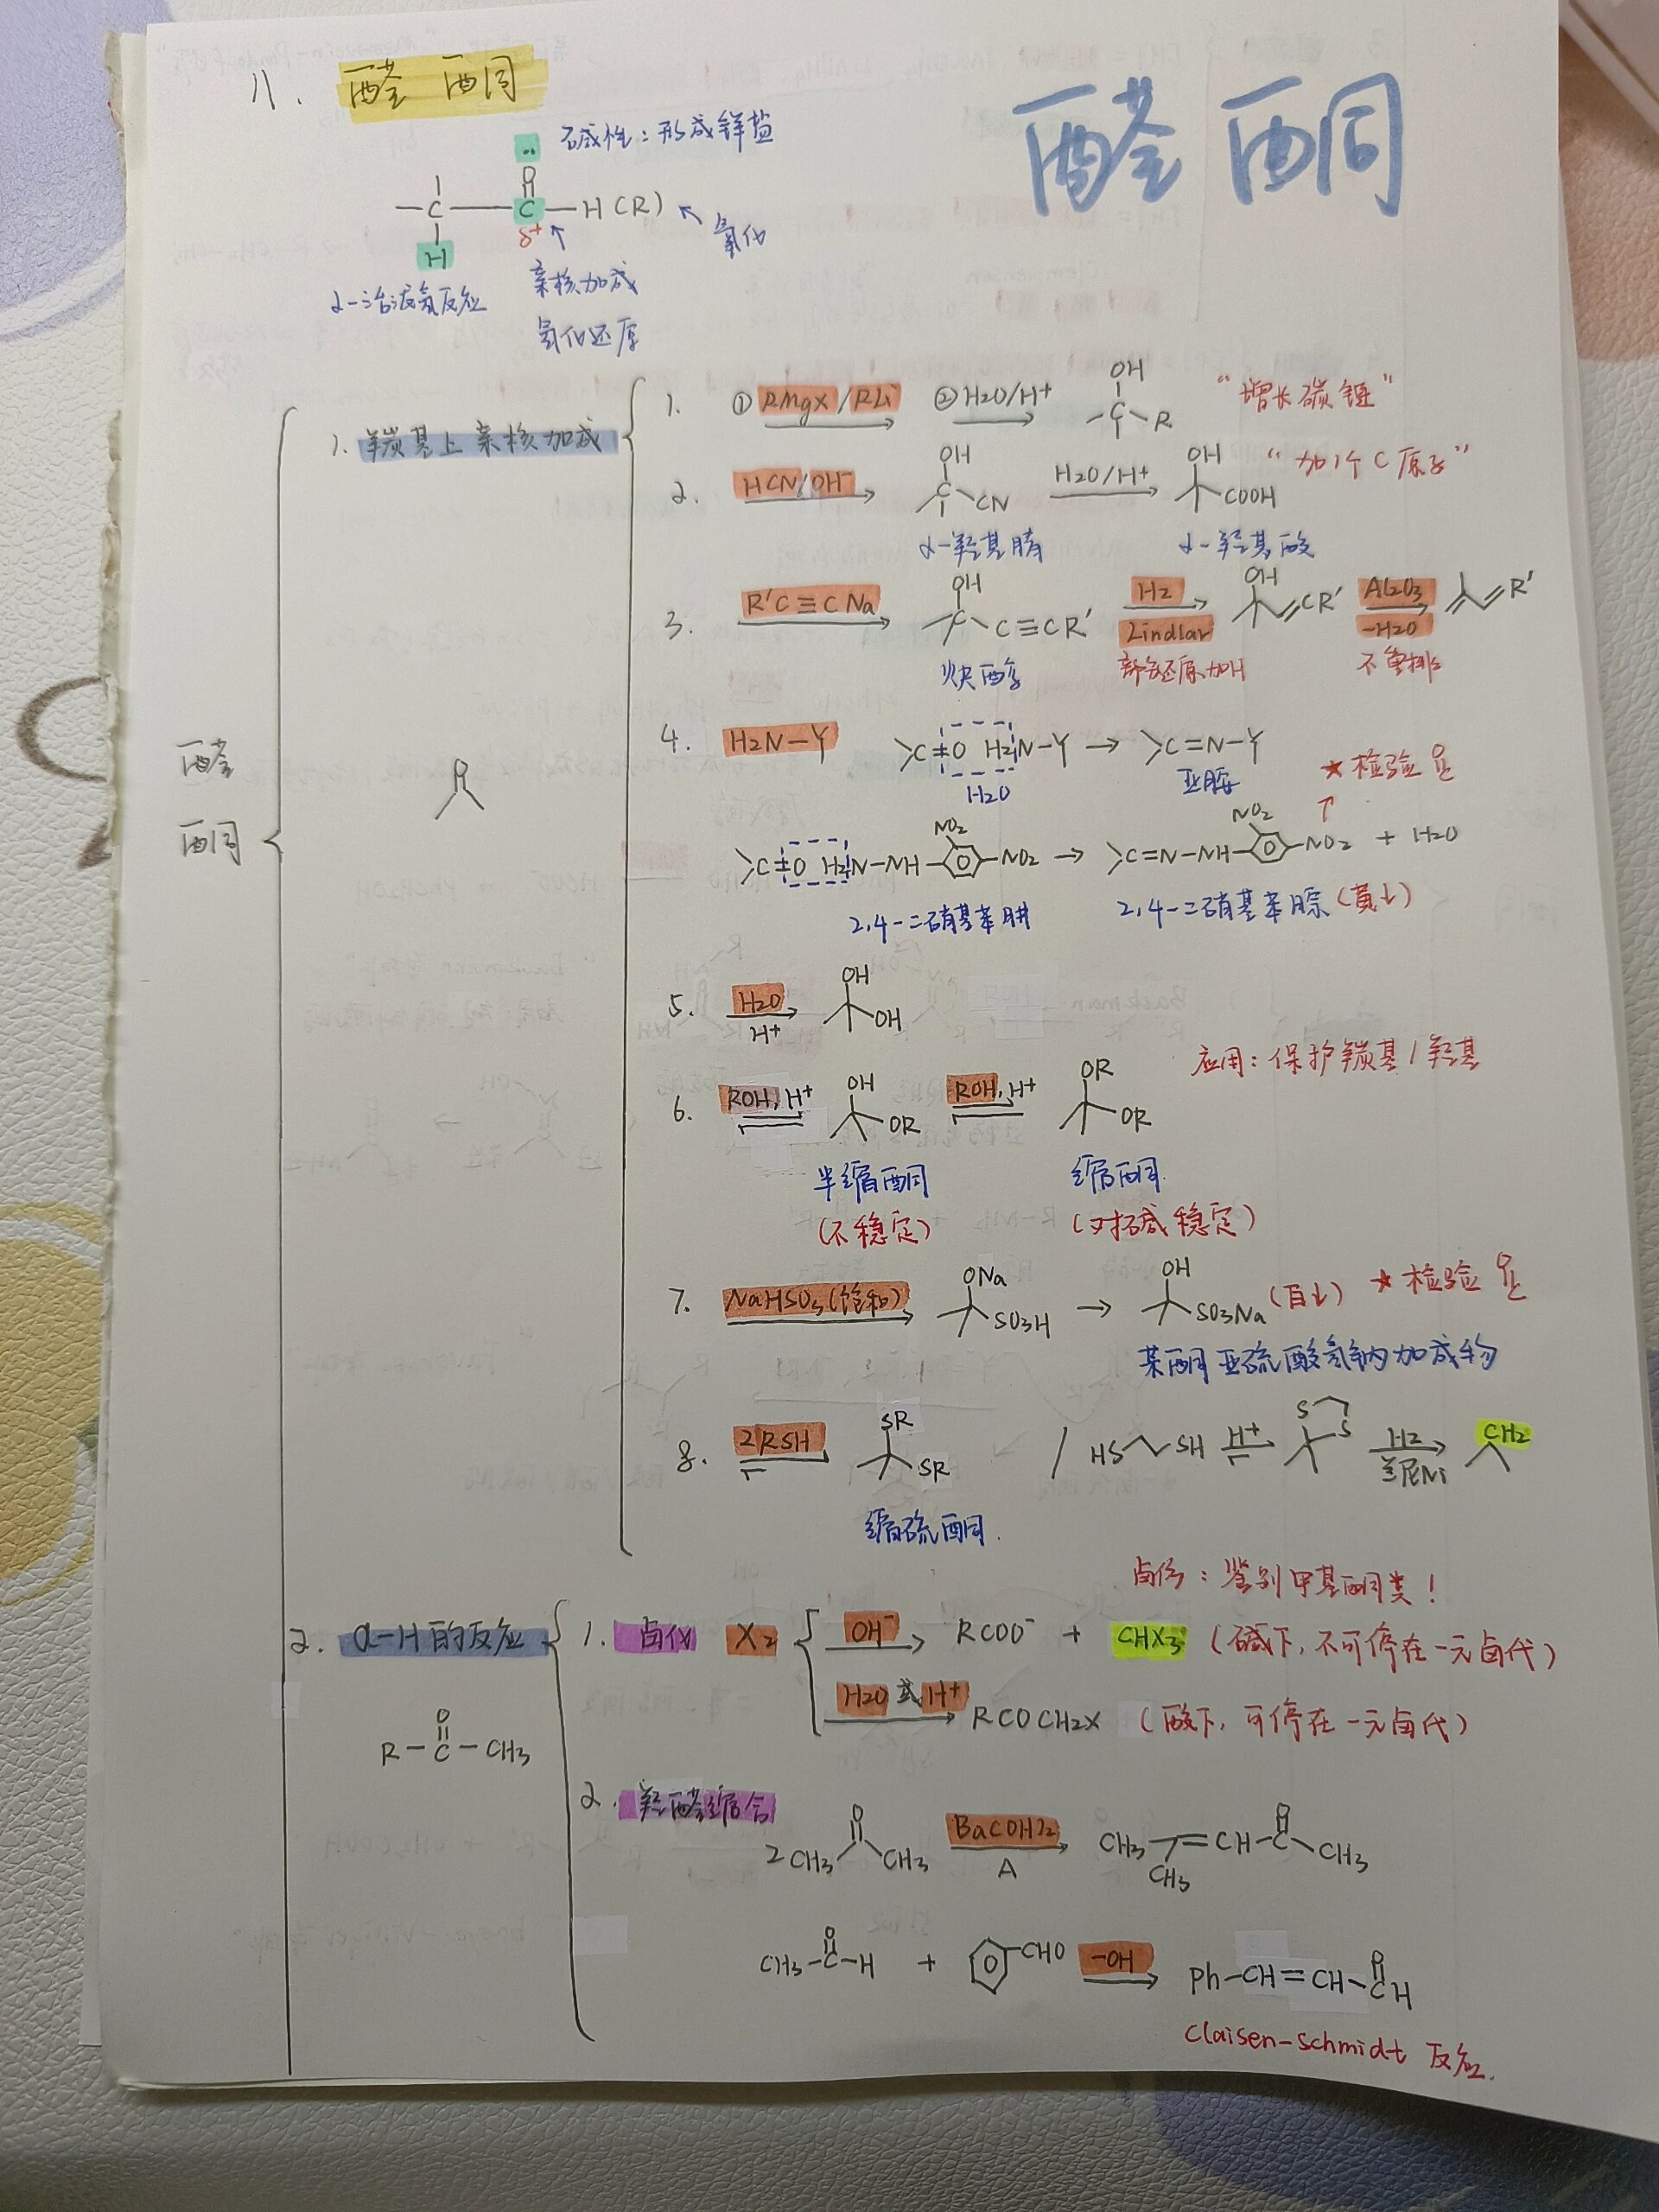 11. 醛 酮
醛 酮
碱性：形成𨦡盐
O
— C — C — H (R)
δ+
H
氧化
α-活泼氢反应
亲核加成
氧化还原
醛
酮
1. 羰基上亲核加成
O
1. ① RMgX/RLi ② H2O/H+
OH
C
R
“增长碳链”
2. HCN/OH⁻
OH
C
CN
H2O/H+
OH
COOH
“加1个C原子”
α-羟基腈
α-羟基酸
3. R'C≡CNa
OH
C≡CR'
H2
Lindlar
OH
CR'
Al2O3
-H2O
R'
炔醇
部分还原加H
不重排
4. H2N-Y
>C=O H2N-Y → >C=N-Y
H2O
亚胺
★ 检验
>C=O H2N-NH-
NO2
-NO2 → >C=N-NH-
NO2
-NO2 + H2O
2,4-二硝基苯肼
2,4-二硝基苯腙 (黄↓)
5. H2O
H+
OH
OH
应用：保护羰基/羟基
6. ROH, H+
OH
OR
ROH, H+
OR
OR
半缩酮
缩酮
(不稳定)
(对碱稳定)
7. NaHSO3(饱和)
ONa
SO3H
→
OH
SO3Na
(白↓) ★ 检验
某酮亚硫酸氢钠加成物
8. 2RSH
SR
SR
/ HS SH
H+
S
S
H2
兰尼Ni
CH2
缩硫酮.
2. α-H的反应
O
R-C-CH3
卤仿：鉴别甲基酮类！
1. 卤代 X2
OH⁻
RCOO⁻ + CHX3 (碱下, 不可停在一元卤代)
H2O或H+
RCOCH2X (酸下, 可停在一元卤代)
2. 羟醛缩合
2 CH3
O
CH3
Ba(OH)2
Δ
CH3
=CH-C
O
CH3
CH3
CH3-C-H
O
+
-CHO
-OH
Ph-CH=CH-C
O
H
Claisen-Schmidt 反应.